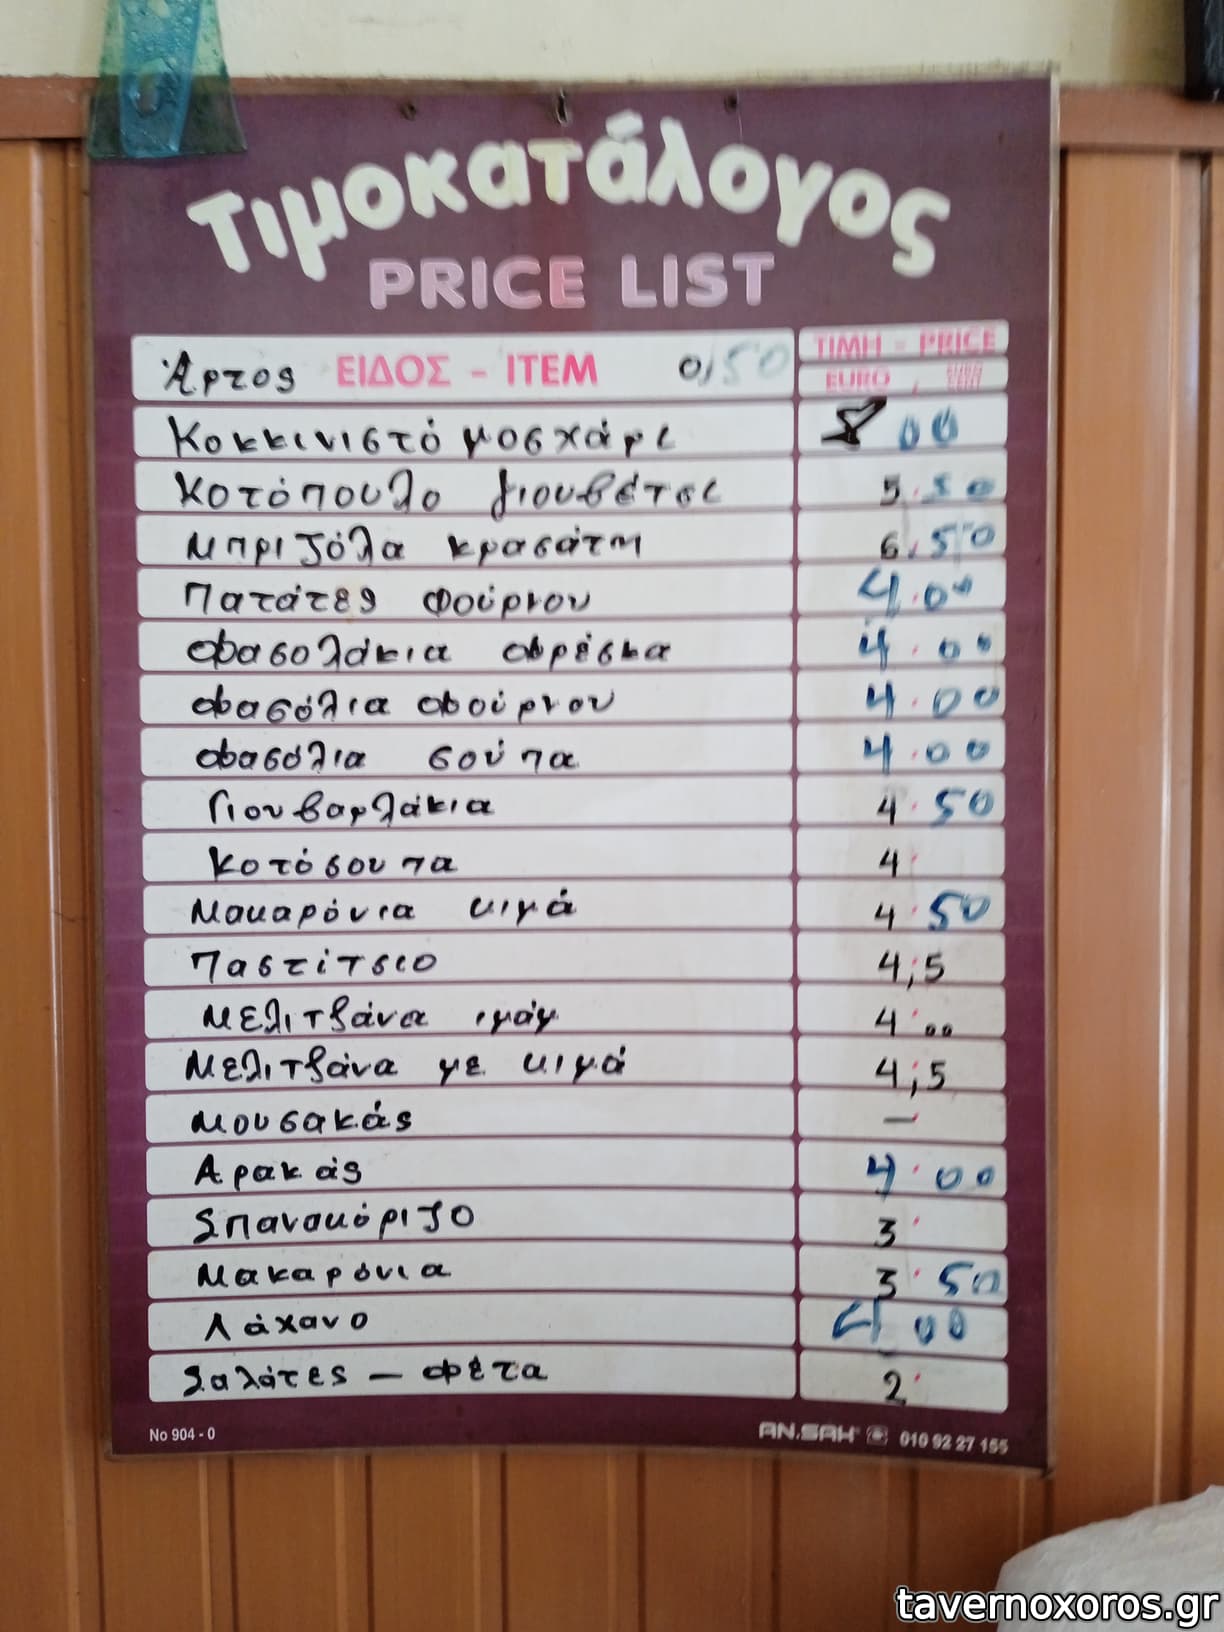 Τιμοκατάλογος
PRICE LIST
Άρτος ΕΙΔΟΣ - ITEM 0,50 ΤΙΜΗ - PRICE
EURO
Κοκκινιστό μοσχάρι 8 00
Κοτόπουλο γιουβέτσι 5.50
Μπριζόλα κρασάτη 6.50
Πατάτες φούρνου 4.00
Φασολάκια φρέσκα 4.00
Φασόλια φούρνου 4.00
Φασόλια σούπα 4.00
Γιουβαρλάκια 4.50
Κοτόσουπα 4
Μακαρόνια κιμά 4.50
Παστίτσιο 4,5
Μελιτζάνα ιμάμ 4.00
Μελιτζάνα με κιμά 4,5
Μουσακάς —
Αρακάς 4.00
Σπανακόριζο 3
Μακαρόνια 3.50
Λάχανο 4 00
Σαλάτες — φέτα 2
No 904 - 0 AN.SAH 010 92 27 155
tavernoxoros.gr